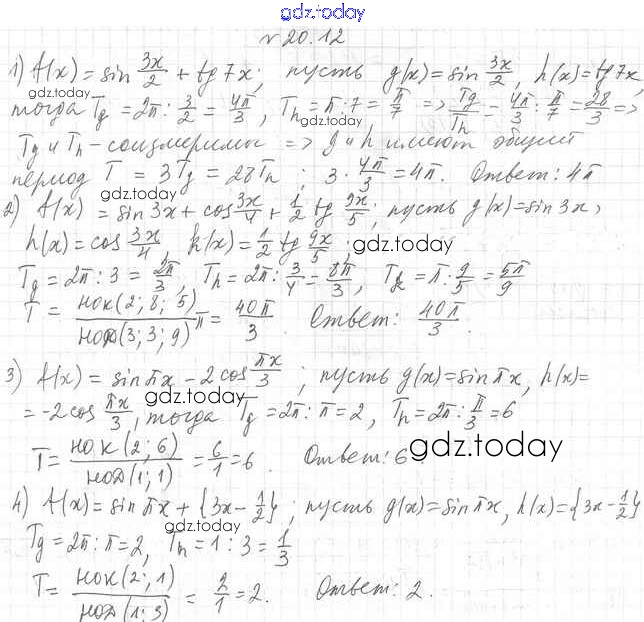 gdz.today
№ 20.12
1) A(x) = sin 3x/2 + tg 7x; пусть g(x) = sin 3x/2, h(x) = tg 7x,
gdz.today
тогда Tg = 2π : 3/2 = 4π/3, Th = π · 7 = π/7 => Tg/Th = 4π/3 : π/7 = 28/3 =>
gdz.today
Tg и Th - соизмеримы => g и h имеют общий
период T = 3Tg = 28Th; 3 · 4π/3 = 4π. Ответ: 4π
gdz.today
2) A(x) = sin 3x + cos 3x/4 + 1/2 tg 9x/5; пусть g(x) = sin 3x,
h(x) = cos 3x/4, k(x) = 1/2 tg 9x/5;
gdz.today
Tg = 2π : 3 = 2π/3, Th = 2π : 3/4 = 8π/3, Tk = π : 9/5 = 5π/9
T = НОК(2; 8; 5)/НОД(3; 3; 9) π = 40π/3. Ответ: 40π/3.
gdz.today
3) A(x) = sin πx - 2 cos πx/3; пусть g(x) = sin πx, h(x) =
= -2 cos πx/3, тогда Tg = 2π : π = 2, Th = 2π : π/3 = 6
gdz.today
T = НОК(2; 6)/НОД(1; 1) = 6/1 = 6. Ответ: 6.
gdz.today
4) A(x) = sin πx + {3x - 1/2}; пусть g(x) = sin πx, h(x) = {3x - 1/2}
gdz.today
Tg = 2π : π = 2, Th = 1 : 3 = 1/3
T = НОК(2; 1)/НОД(1; 3) = 2/1 = 2. Ответ: 2.
gdz.today